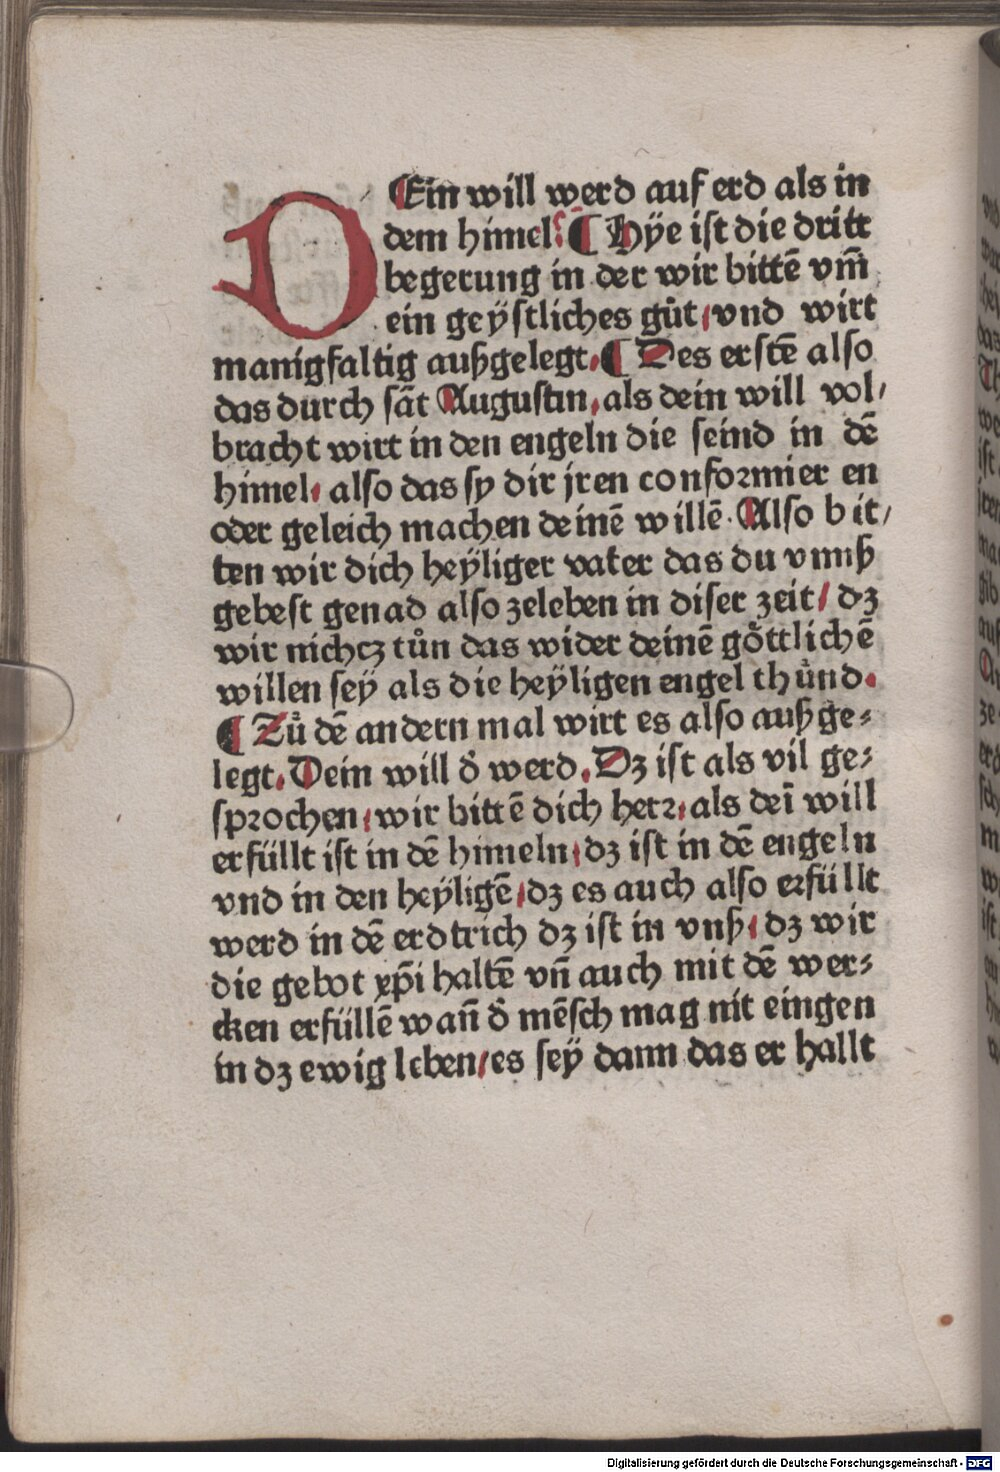 DEin will werd auf erd als in
dem himel. ¶ Hÿe ist die dritt
begerung in der wir bittē vm̄
ein geÿstliches gůt / vnd wirt
manigfaltig außgelegt. ¶ Des erstē also
das durch sāt Augustin, als dein will vol/
bracht wirt in den engeln die seind in dē
himel, also das sy dir jren conformier en
oder geleich machen deinē willē. Also bit/
ten wir dich heÿliger vater das du vnnß
gebest genad also zeleben in diser zeit / dz
wir nichcz tůn das wider deinē göttlichē
willen seÿ als die heÿligen engel thůnd.
¶ Zů dē andern mal wirt es also außge⸗
legt. Dein will d̕ werd. Dz ist als vil ge⸗
sprochen / wir bittē dich herr, als deī will
erfüllt ist in dē himeln / dz ist in dē engeln
vnd in den heÿligē / dz es auch also erfüllt
werd in dē erdtrich dz ist in vnß / dz wir
die gebot xp̄i haltē vn̄ auch mit dē wer⸗
cken erfüllē wan̄ d̕ mēsch mag nit eingen
in dz ewig leben / es seÿ dann das er hallt
Digitalisierung gefördert durch die Deutsche Forschungsgemeinschaft - DFG